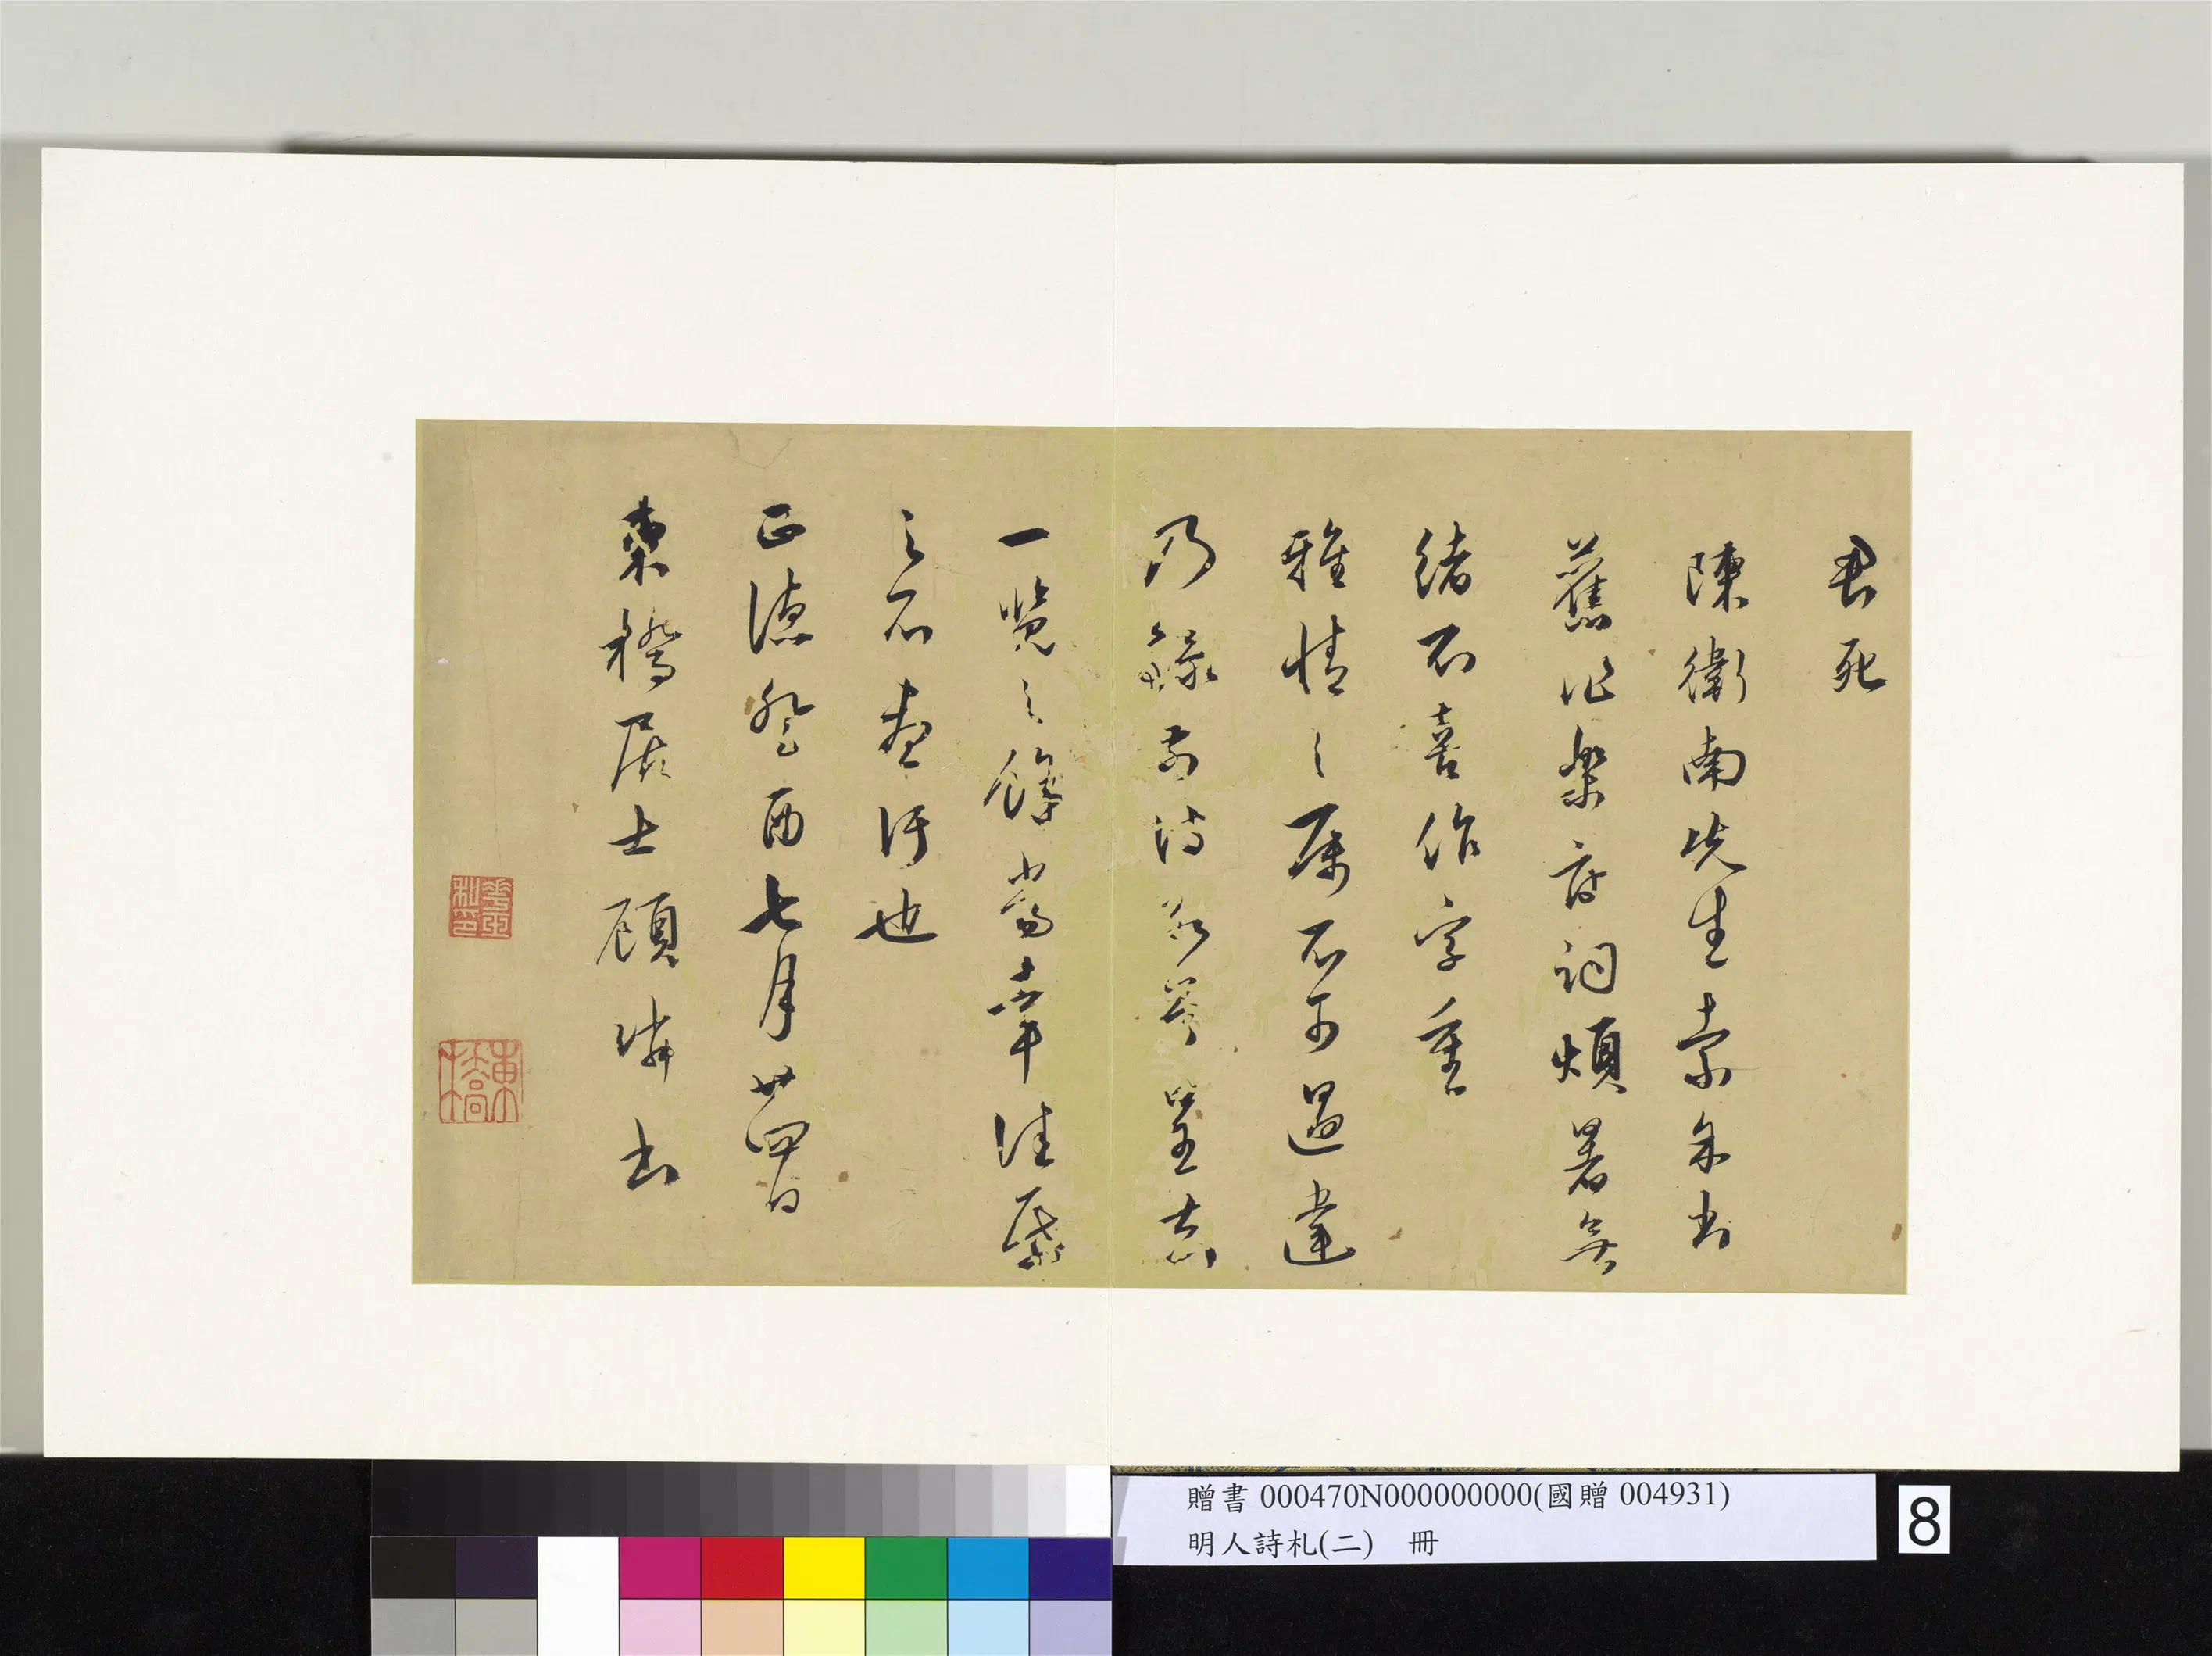 君死
陳衛南先生索余書
舊作樂府詞煩暑無
緒不喜作字重
雅情之屬不可過違
乃錄前詩數首呈去
一覽之餘當幸注展
之不盡汙也
正德癸酉七月廿四日
東橋居士顧璘書
東橋
贈書 000470N000000000(國贈 004931)
明人詩札(二) 冊
8